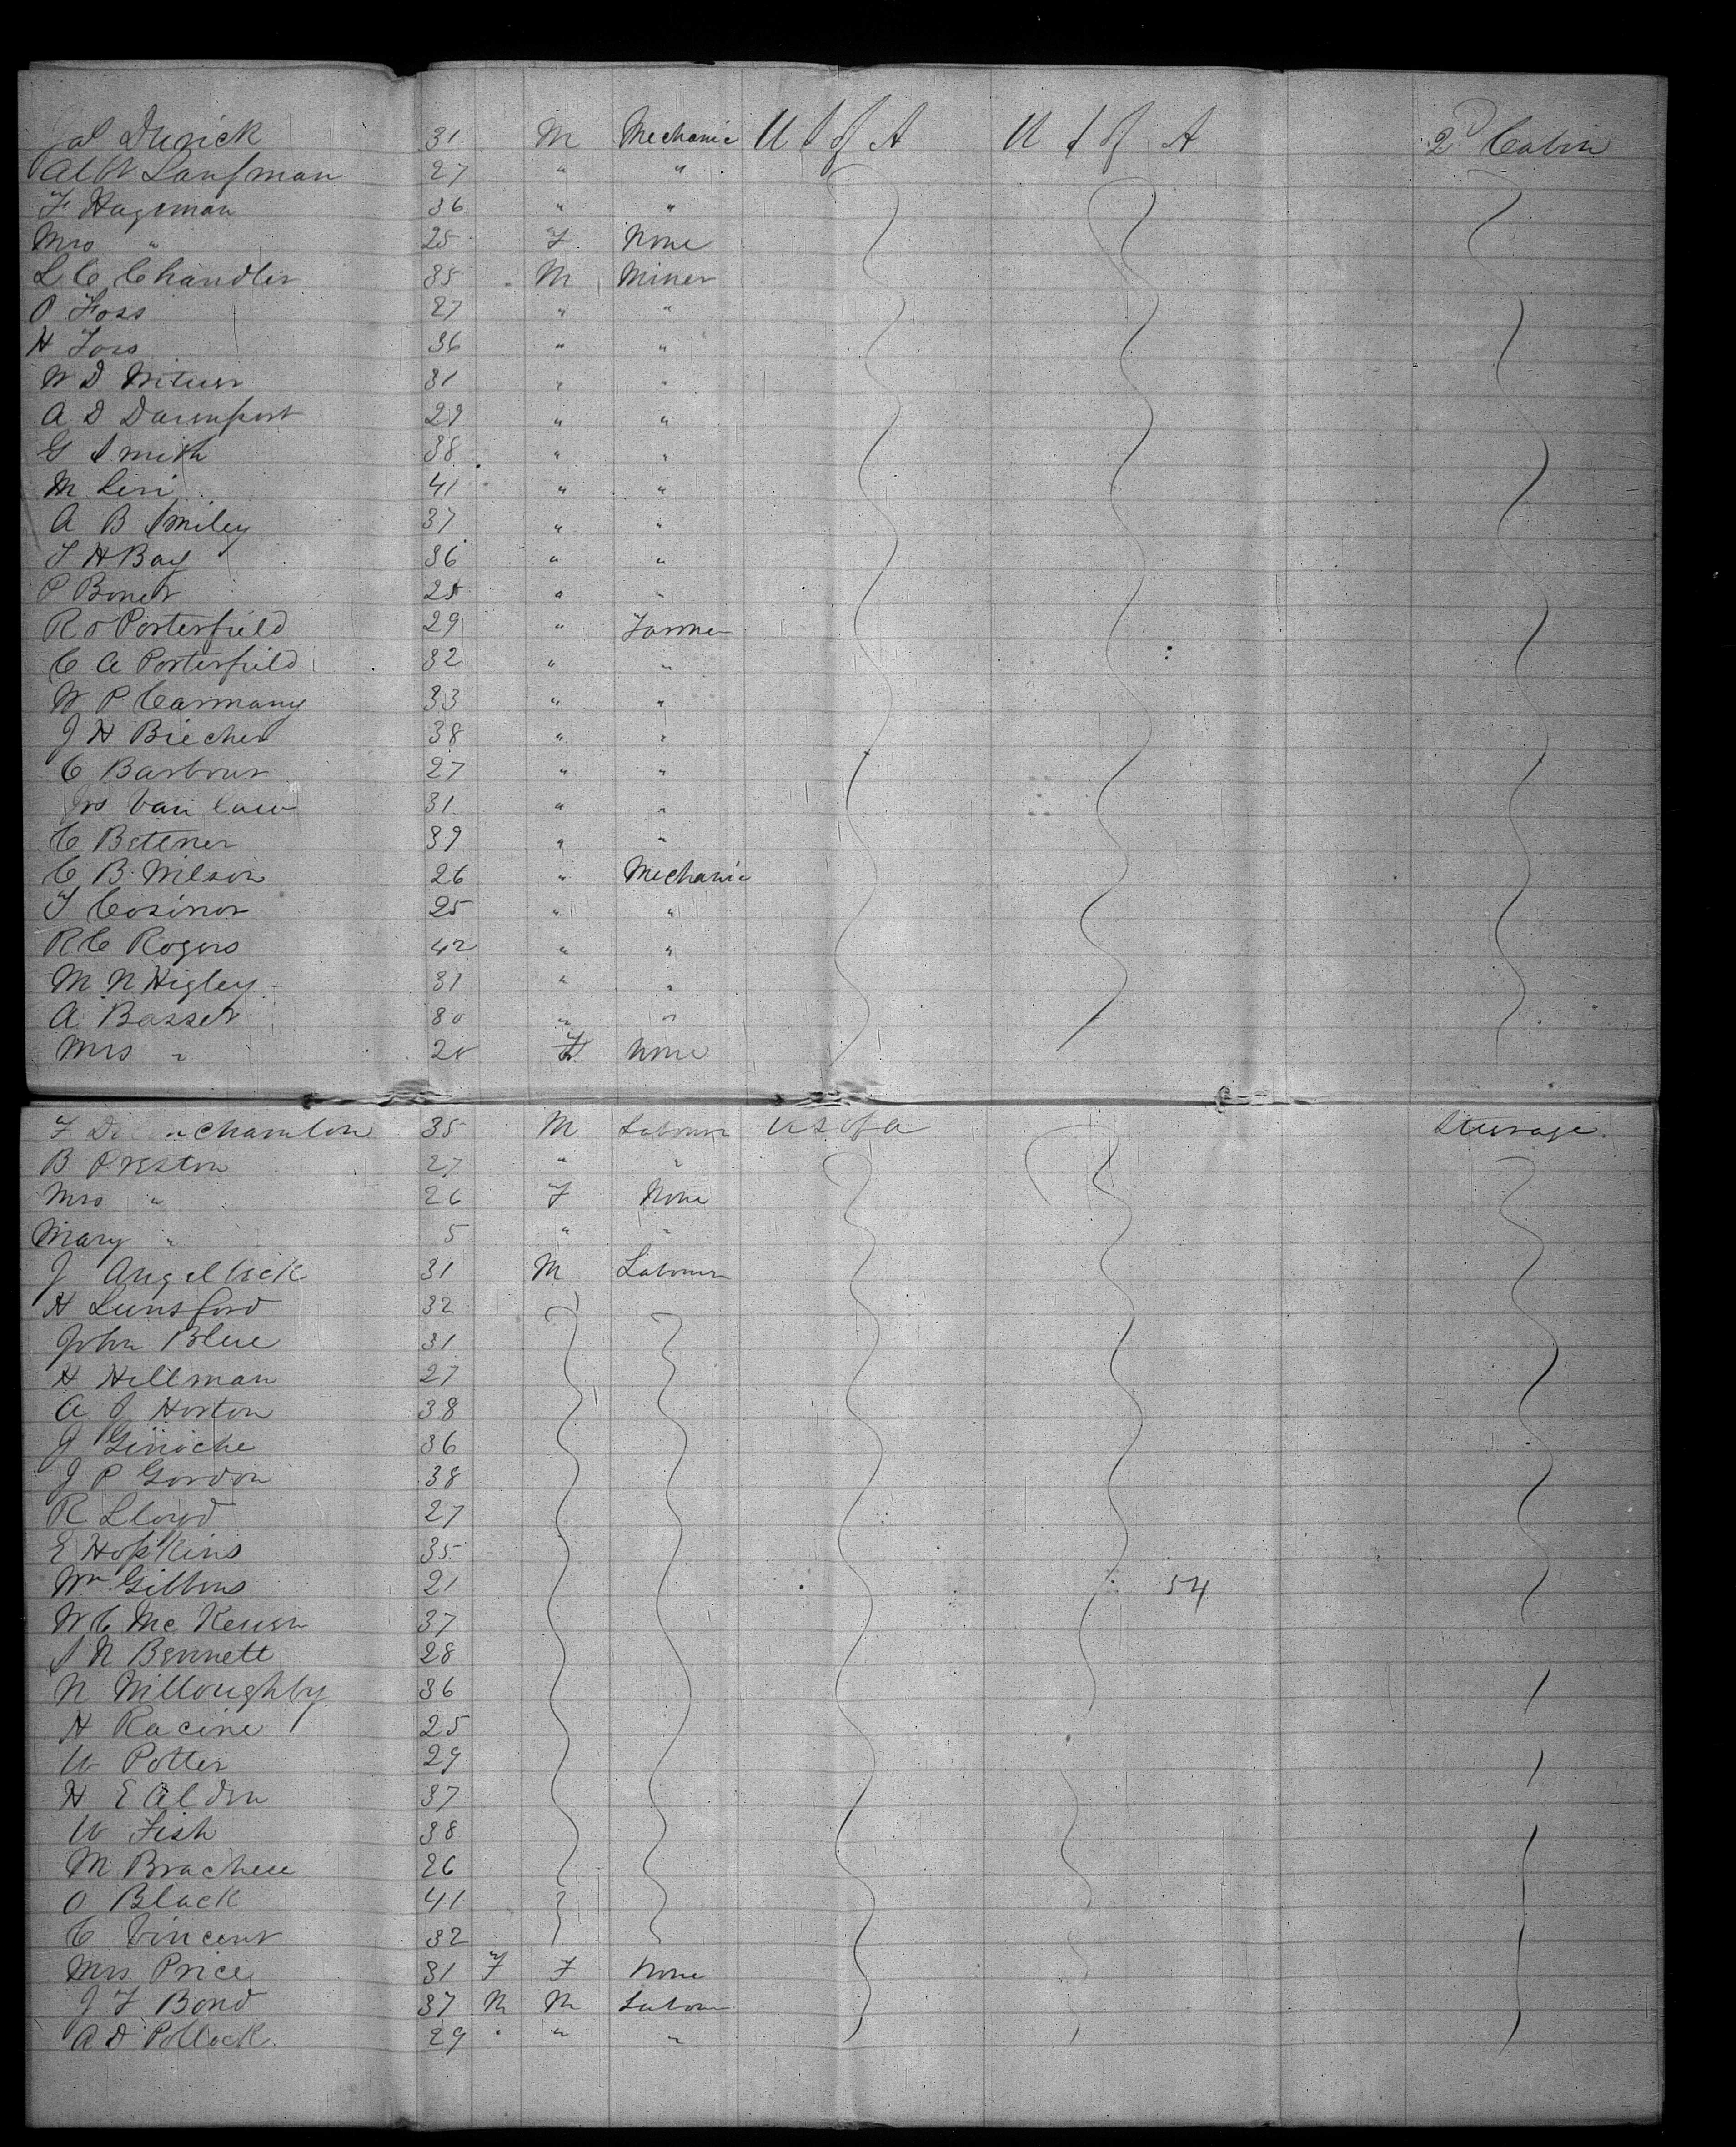 Jas Durick 31 M Mechanic U S of A U S of A 2d Cabin
Alb Laufman 27 " "
F Hageman 36 " "
Mrs " 25 F None
L C Chandler 35 M Miner
P Foss 27 " "
H Foss 36 " "
W D 31 " "
A D Davenport 29 " "
G Smith 38 " "
M Levi 41 " "
A B Smiley 37 " "
T H Bay 36 " "
P Boner 25 " "
R O Porterfield 29 " Farmer
C A Porterfield 32 " "
W P Carmany 33 " "
J H Biecher 38 " "
C Barbour 27 " "
Jno Van Law 31 " "
C Bettner 39 " "
C B Wilson 26 " Mechanic
T Cosinor 25 " "
R C Rogers 42 " "
M N Higley 31 " "
A Basset 30 " "
Mrs " 28 F None
F 35 M Labourer U S of A Steerage
B Preston 27 " "
Mrs " 26 F None
Mary " 5 " "
J Angelbeck 31 M Labourer
H Lunsford 32
John Blue 31
H Hillman 27
A S Horton 38
J Ginoche 36
J P Gordon 38
R Lloyd 27
E Hopkins 35
Wm Gibbons 21 54
W C McKeown 37
S N Bennett 28
N Willoughby 36
H Racine 25
W Potter 29
H E Alden 37
W Fish 38
M Brachere 26
O Black 41
C Vincent 32
Mrs Price 31 F F None
J F Bond 37 M M Labour
A D Pollock 29 " " "